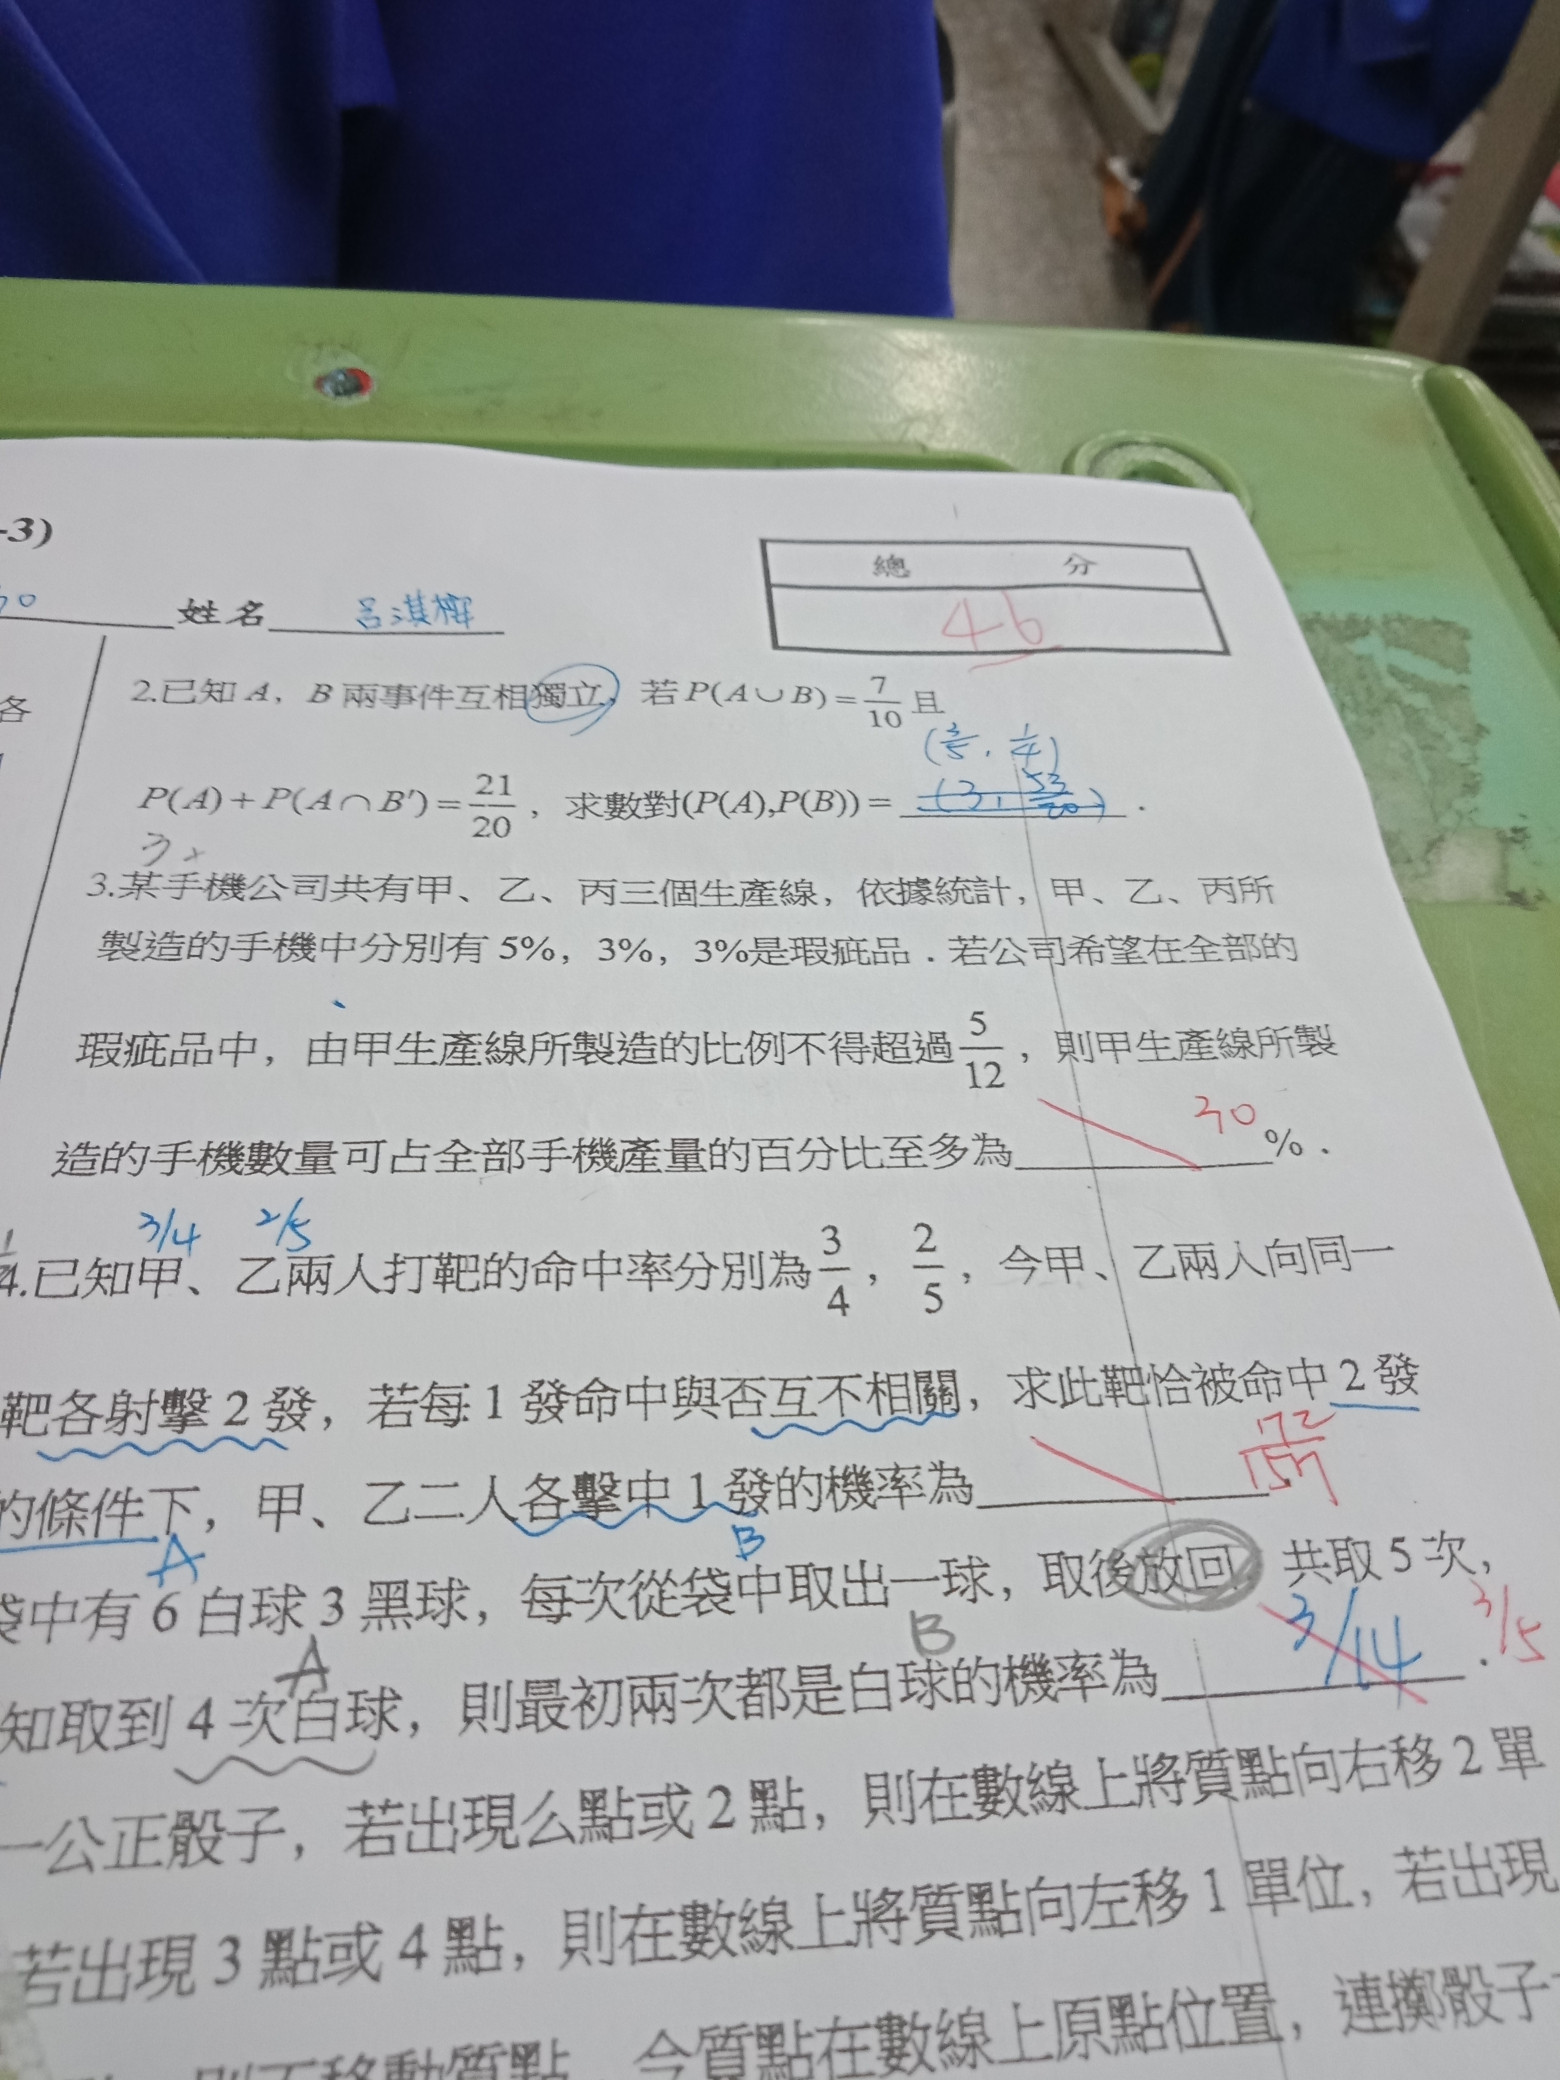 -3)
總 分
46
姓名 呂淇樺
各
2.已知 A，B 兩事件互相獨立，若 P(A∪B) = 7/10 且
(3/5, 1/4)
P(A) + P(A∩B′) = 21/20，求數對(P(A),P(B)) = (3, 53/20)．
3.某手機公司共有甲、乙、丙三個生產線，依據統計，甲、乙、丙所
製造的手機中分別有 5%，3%，3%是瑕疵品．若公司希望在全部的
瑕疵品中，由甲生產線所製造的比例不得超過 5/12，則甲生產線所製
造的手機數量可占全部手機產量的百分比至多為 30 %．
3/4 2/5
4.已知甲、乙兩人打靶的命中率分別為 3/4，2/5，今甲、乙兩人向同一
靶各射擊 2 發，若每 1 發命中與否互不相關，求此靶恰被命中 2 發
的條件下，甲、乙二人各擊中 1 發的機率為 72/157
A B
袋中有 6 白球 3 黑球，每次從袋中取出一球，取後放回，共取 5 次，
A B
知取到 4 次白球，則最初兩次都是白球的機率為 3/14．3/5
一公正骰子，若出現么點或 2 點，則在數線上將質點向右移 2 單
若出現 3 點或 4 點，則在數線上將質點向左移 1 單位，若出現
則不移動質點．今質點在數線上原點位置，連擲骰子